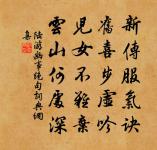 新傳服氣訣
舊喜步虛吟
兒女不難棄
雲山何處深
陸游幽事絕句詞典網
集